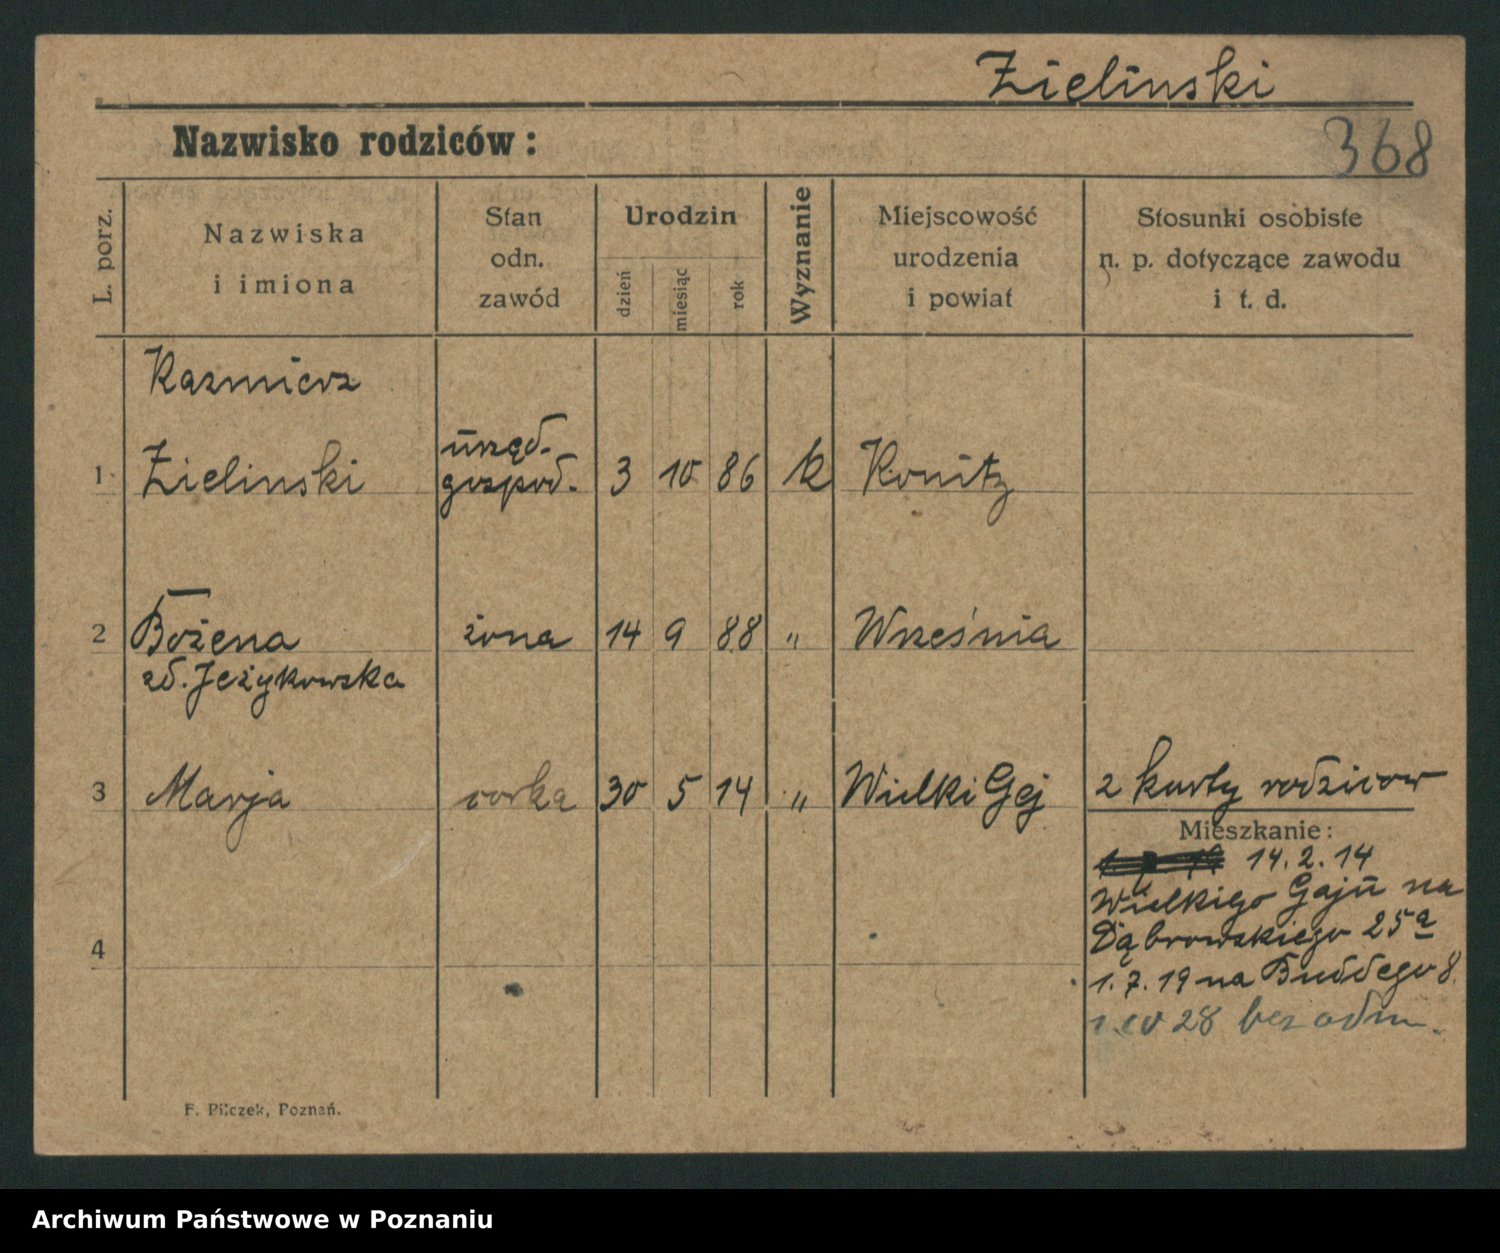 Zielinski
Nazwisko rodziców:
368
L. porz.
Nazwiska
i imiona
Stan
odn.
zawód
Urodzin
dzień
miesiąc
rok
Wyznanie
Miejscowość
urodzenia
i powiat
Stosunki osobiste
n. p. dotyczące zawodu
i t. d.
Kazmierz
1 Zielinski urzęd. gospod. 3 10 86 k Konitz
2 Bożena żona 14 9 88 " Września
zd. Jeżykowska
3 Marja corka 30 5 14 " Wielki Gaj 2 karty rodzicow
Mieszkanie:
14.2.14
Wielkigo Gaju na
Dąbrowskiego 25a
4
1.7.19 na Buddego 8.
28 bez odm.
F. Pilczek, Poznań.
Archiwum Państwowe w Poznaniu